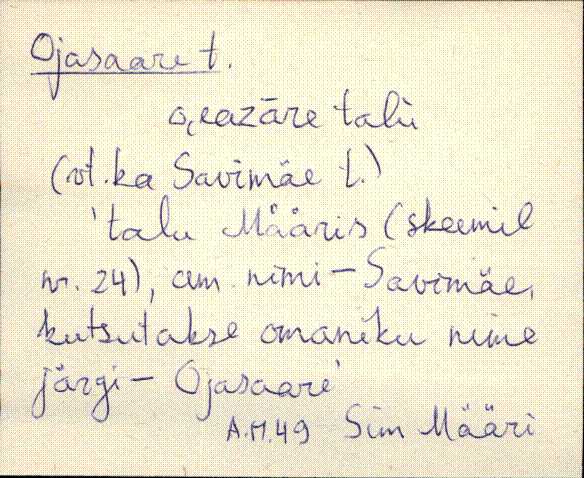 Ojasaare t.
o̭eazāre talù
(vt. ka Savimäe t.)
'talu Määris (skeemil
nr. 24), am. nimi - Savimäe,
kutsutakse omaniku nime
järgi - Ojasaare'
A.M.49 Sim Määri